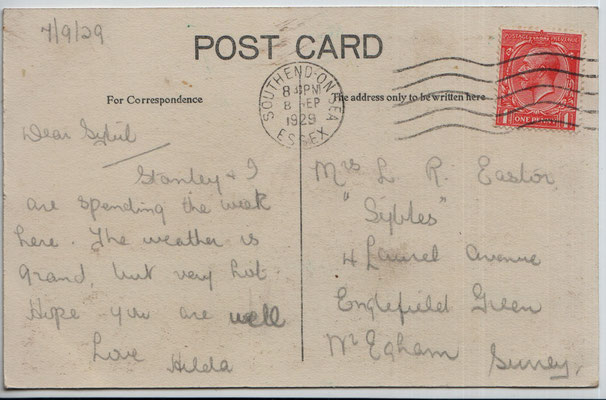 7/9/29
POST CARD
For Correspondence
The address only to be written here
SOUTHEND-ON-SEA
8 PM
8 SEP
1929
ESSEX
POSTAGE REVENUE
ONE PENNY
Dear Sybil
Stanley & I
are spending the week
here. The weather is
grand, but very hot.
Hope you are well
Love
Hilda
Mrs L. R. Easton
"Sybles"
4 Laurel Avenue
Englefield Green
Nr Egham Surrey.